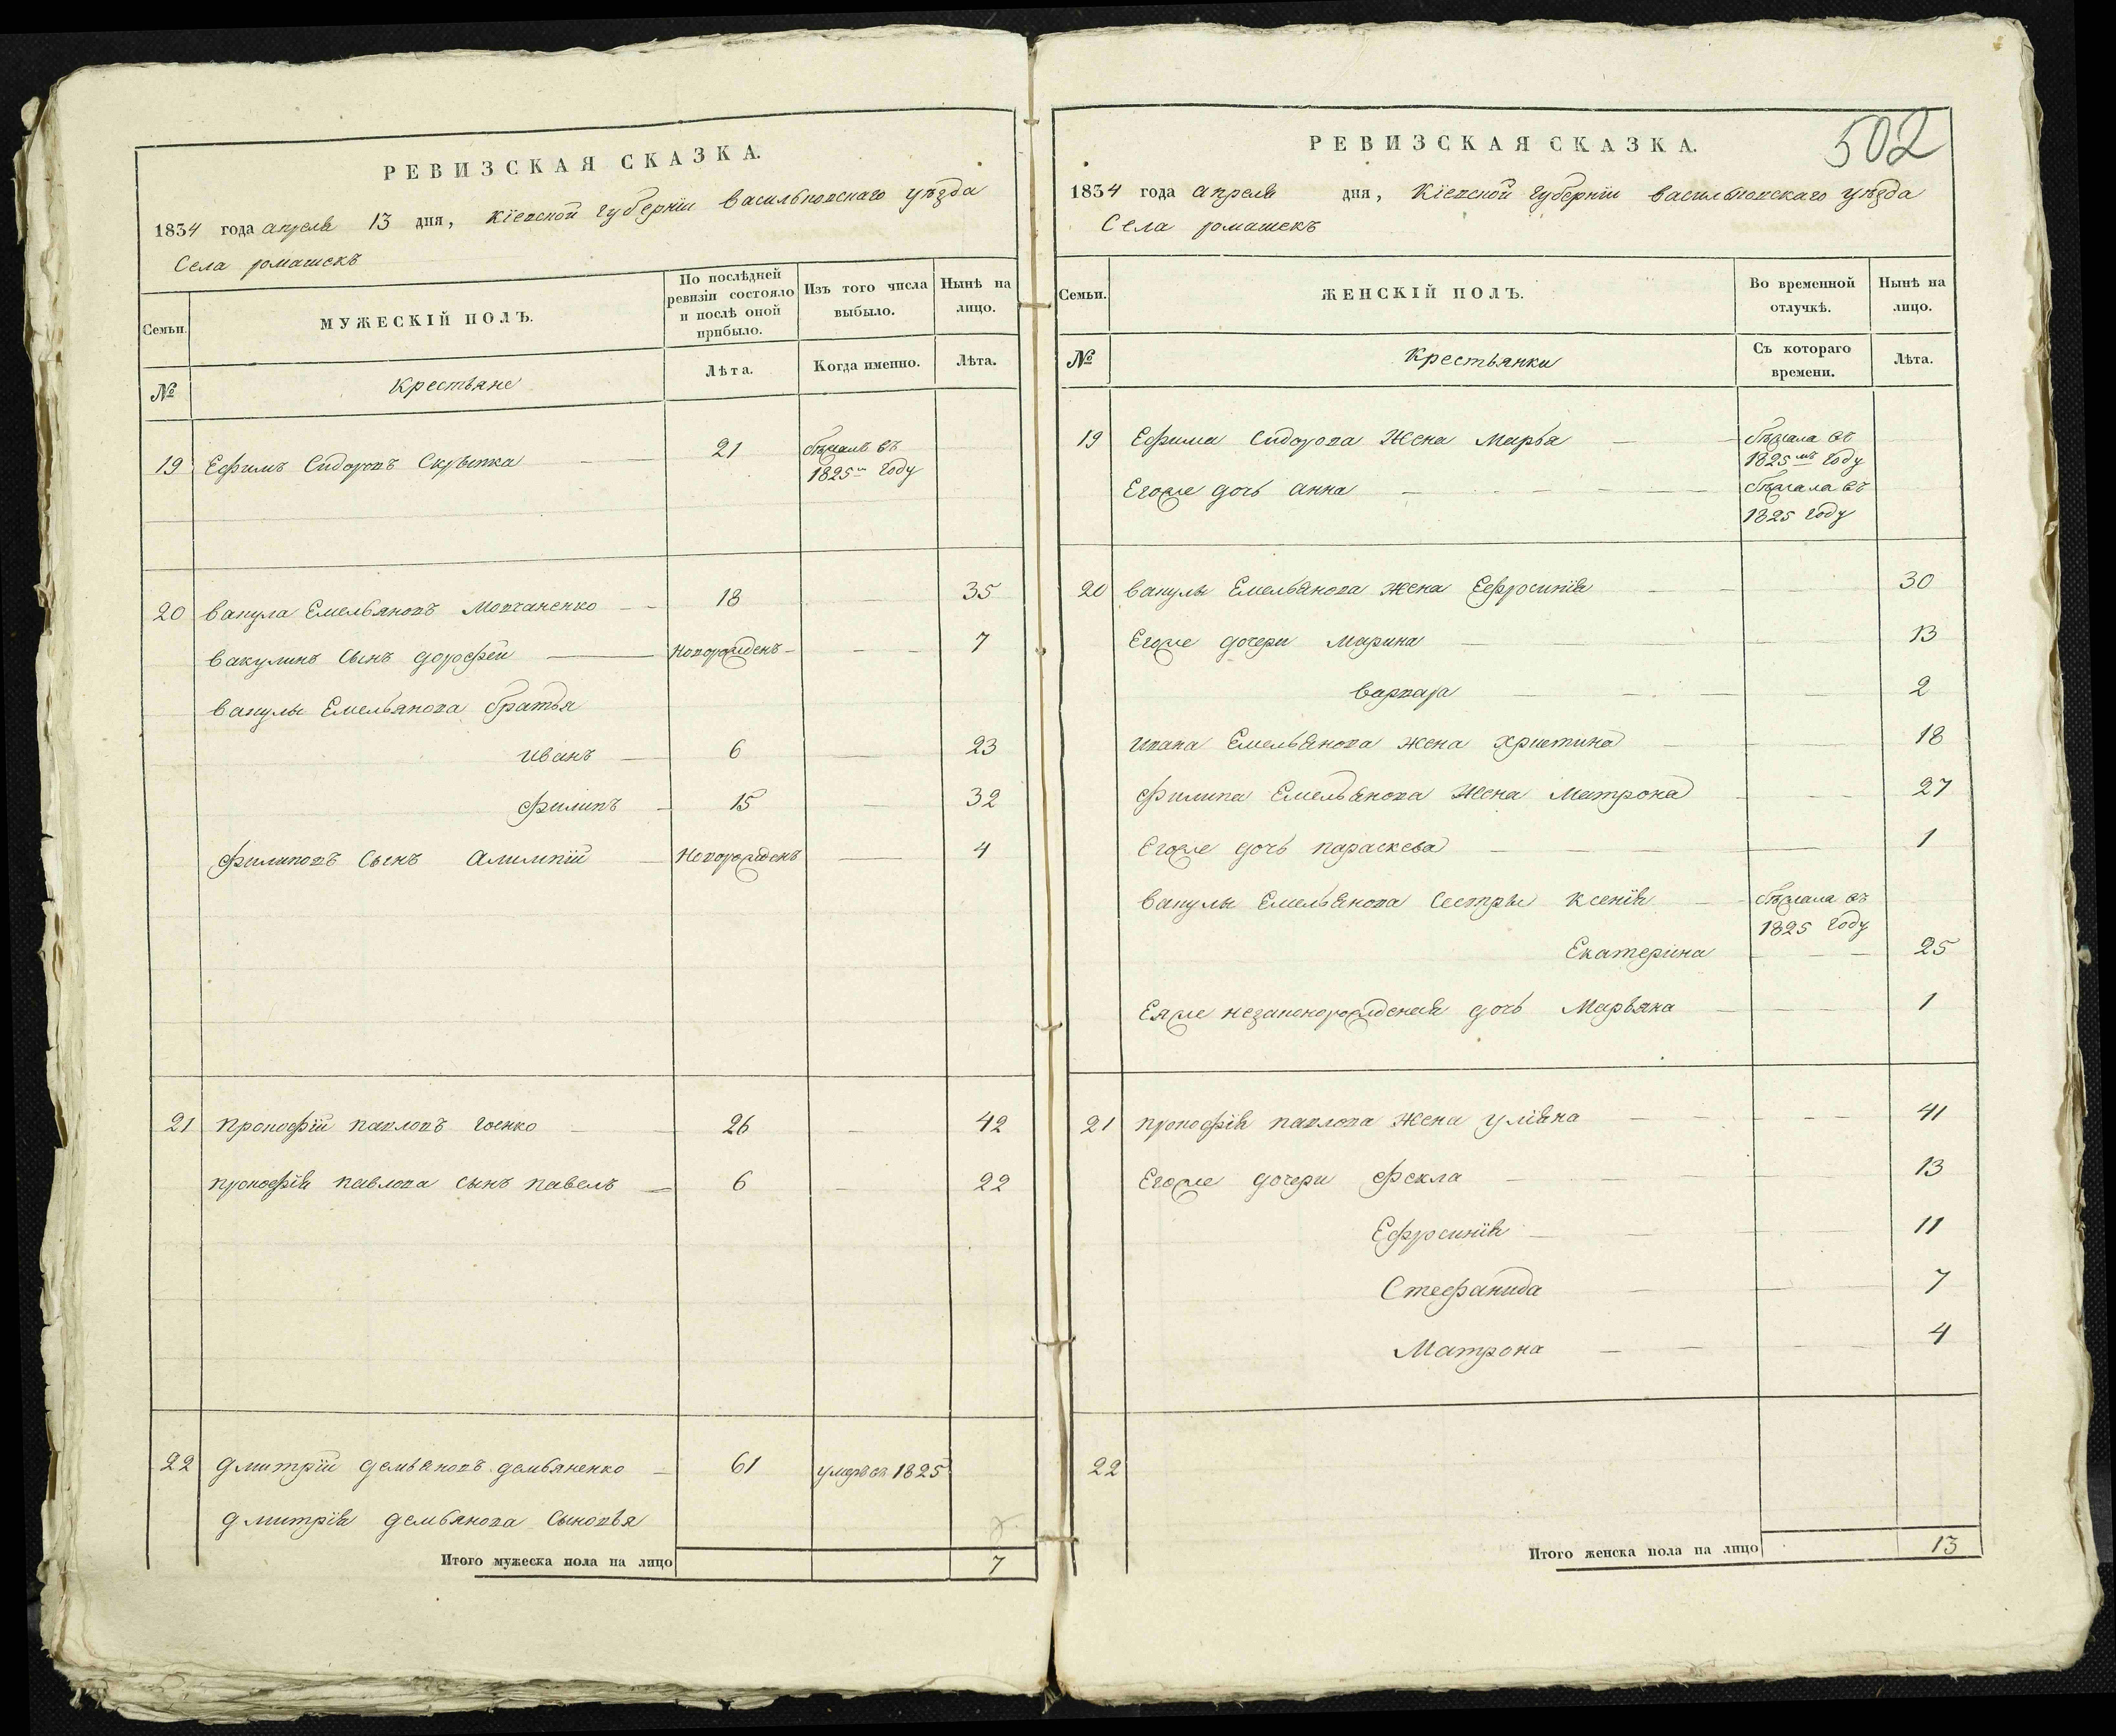 РЕВИЗСКАЯ СКАЗКА.
1834 года апреля 13 дня, Кіевской губерніи Васильковскаго уѣзда
Села ромашекъ
Семьи.
МУЖЕСКІЙ ПОЛЪ.
По послѣдней ревизіи состояло и послѣ оной прибыло.
Изъ того числа выбыло.
Нынѣ на лицо.
№
Крестьяне
Лѣта.
Когда именно.
Лѣта.
19 Ефимъ Сидоровъ 21 бѣжалъ въ
1825 году
20 вакула Емельяновъ Мовчаненко 18 35
вакулинъ Сынъ дорофей новорожденъ 7
вакулы Емельянова братья
иванъ 6 23
филипъ 15 32
филиповъ Сынъ Алимпій новорожденъ 4
21 прокофій павловъ гоенко 26 42
прокофія павлова сынъ павелъ 6 22
22 дмитрій демьяновъ демьяненко 61 умеръ въ 1825
дмитрія демьянова сыновья
Итого мужеска пола на лицо 7
502
РЕВИЗСКАЯ СКАЗКА.
1834 года апреля дня, Кіевской губерніи васильковскаго уѣзда
Села ромашекъ
Семьи.
ЖЕНСКІЙ ПОЛЪ.
Во временной отлучкѣ.
Нынѣ на лицо.
№
Крестьянки
Съ котораго времени.
Лѣта.
19 Ефима Сидорова жена марья бѣжала въ
1825мъ году
Егоже дочь анна бѣжала въ
1825 году
20 вакулы Емельянова жена Ефросинія 30
Егоже дочери Марина 13
варвара 2
ивана Емельянова жена христина 18
филипа Емельянова жена Матрона 27
Егоже дочь параскева 1
вакулы Емельянова Сестры Ксенія бѣжала въ
1825 году
Екатерина 25
Еяже незаконорожденая дочь Марьяна 1
21 прокофія павлова жена уліяна 41
Егоже дочери фекла 13
Ефросинія 11
Стефанида 7
Матрона 4
22
Итого женска пола на лицо 13